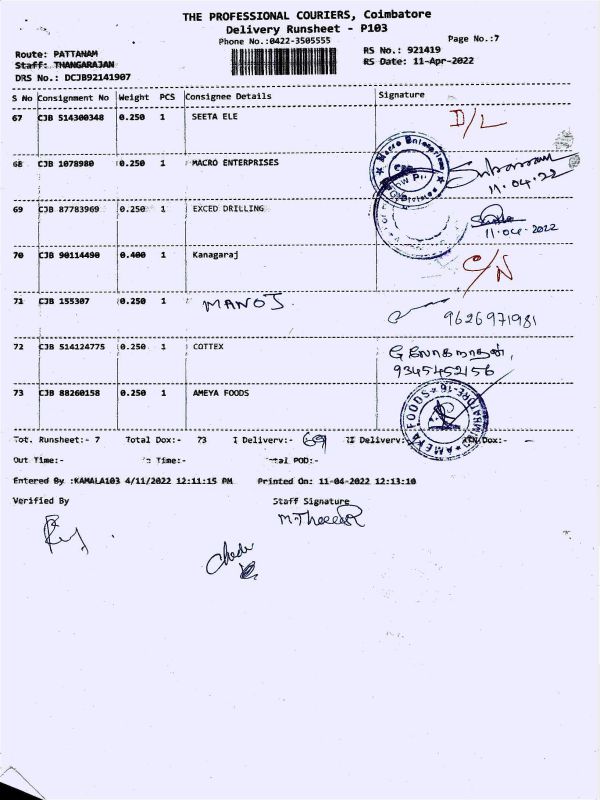 THE PROFESSIONAL COURIERS, Coimbatore
Delivery Runsheet - P103
Phone No.:0422-3505555
Page No.:7
Route: PATTANAM
RS No.: 921419
Staff: THANGARAJAN
RS Date: 11-Apr-2022
DRS No.: DCJB92141907
S No Consignment No Weight PCS Consignee Details Signature
67 CJB 514300348 0.250 1 SEETA ELE D/L
68 CJB 1078980 0.250 1 MACRO ENTERPRISES
Macro Enterprises
11.04.22
69 CJB 87783969 0.250 1 EXCED DRILLING
11.04.2022
70 CJB 90114490 0.400 1 Kanagaraj C/N
71 CJB 155307 0.250 1 MANOJ
9626971981
72 CJB 514124775 0.250 1 COTTEX
9345452156
73 CJB 88260158 0.250 1 AMEYA FOODS
AMEYA FOODS
Tot. Runsheet:- 7 Total Dox:- 73 I Delivery:- 69 II Delivery:- Dox:-
Out Time:- Time:- POD:-
Entered By :KAMALA103 4/11/2022 12:11:15 PM Printed On: 11-04-2022 12:13:10
Verified By Staff Signature